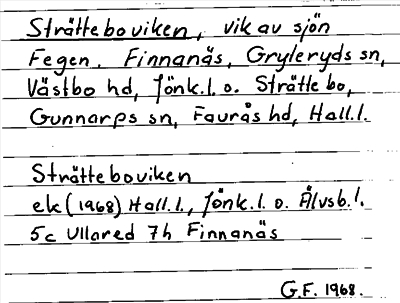 Stråtteboviken, vik av sjön
Fegen. Finnanäs, Gryleryds sn,
Västbo hd, Jönk.l. o. Stråttebo,
Gunnarps sn, Faurås hd, Hall.l.
Stråtteboviken
ek (1968) Hall.l., Jönk.l. o. Älvsb.l.
5c Ullared 7h Finnanäs
G.F. 1968.